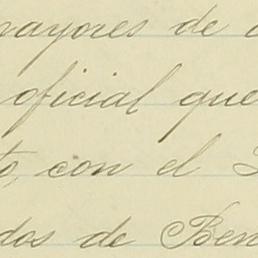 mayores de
oficial que
to, con el
dos de Ben